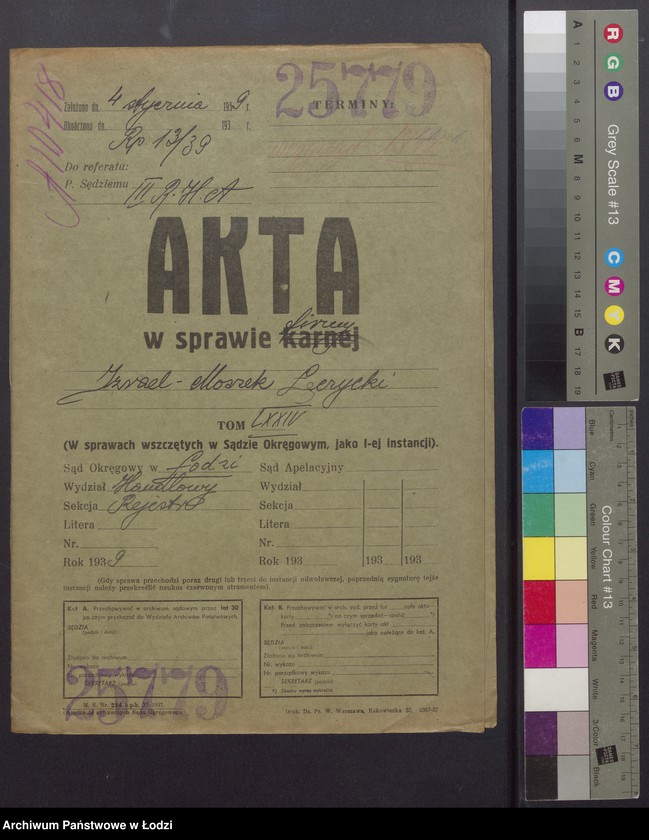 25779
Założono dn. 4 stycznia 1939 r.
TERMINY:
Ukończono dn. 193 r.
Rp 13/39
Do referatu:
P. Sędziemu III R.H.A
AKTA
w sprawie karnej firmy
Izrael-Moszek Łęczycki
TOM LXXIV
(W sprawach wszczętych w Sądzie Okręgowym, jako I-ej instancji).
Sąd Okręgowy w Łodzi
Wydział Handlowy
Sekcja Rejestr
Litera
Nr.
Rok 1939
Sąd Apelacyjny
Wydział
Sekcja
Litera
Nr.
Rok 193 193 193
(Gdy sprawa przechodzi poraz drugi lub trzeci do instancji odwoławczej, poprzednią sygnaturę tejże
instancji należy przekreślić ukośnie czerwonym atramentem).
Kat A. Przechowywać w archiwum sądowym przez lat 30
po czym przekazać do Wydziału Archiwów Państwowych.
SĘDZIA
(podpis i data)
Złożono do archiwum
SEKRETARZ (podpis)
25779
Kat B. Przechowywać w arch. sąd. przez lat
karty *) po czym sprzedać—spalić *)
Przed zniszczeniem wyłączyć karty akt
jako należące do kat. A.
SĘDZIA
(podpis i data)
Złożono do archiwum
Nr. wykazu
Nr. porządkowy wykazu
SEKRETARZ (podpis)
*) Zbędny wyraz wykreślić
Druk. Dz. Pr. W. Warszawa, Rakowiecka 37.
A
1
2
3
4
5
6
M
8
9
10
11
12
13
14
15
B
17
18
19
R
G
B
Grey Scale #13
C
M
Y
K
inches
Centimetres
Blue
Cyan
Green
Yellow
Red
Magenta
White
3/Color
Black
Colour Chart #13
Archiwum Państwowe w Łodzi